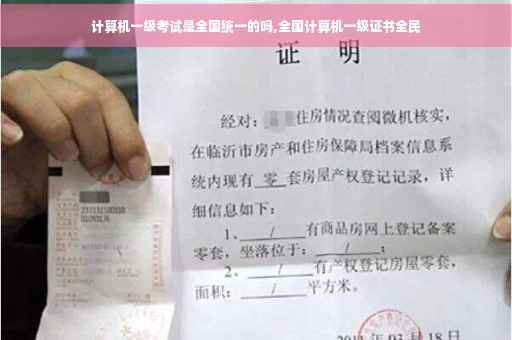 计算机一级考试是全国统一的吗,全国计算机一级证书全民
证 明
经对: 住房情况查阅微机核实,
在临沂市房产和住房保障局档案信息系
统内现有 零 套房屋产权登记记录,详
细信息如下:
1、 / 有商品房网上登记备案
零套,坐落位于: / ;
2、 / 有产权登记房屋零套,
面积: / 平方米。
03 月 18 日